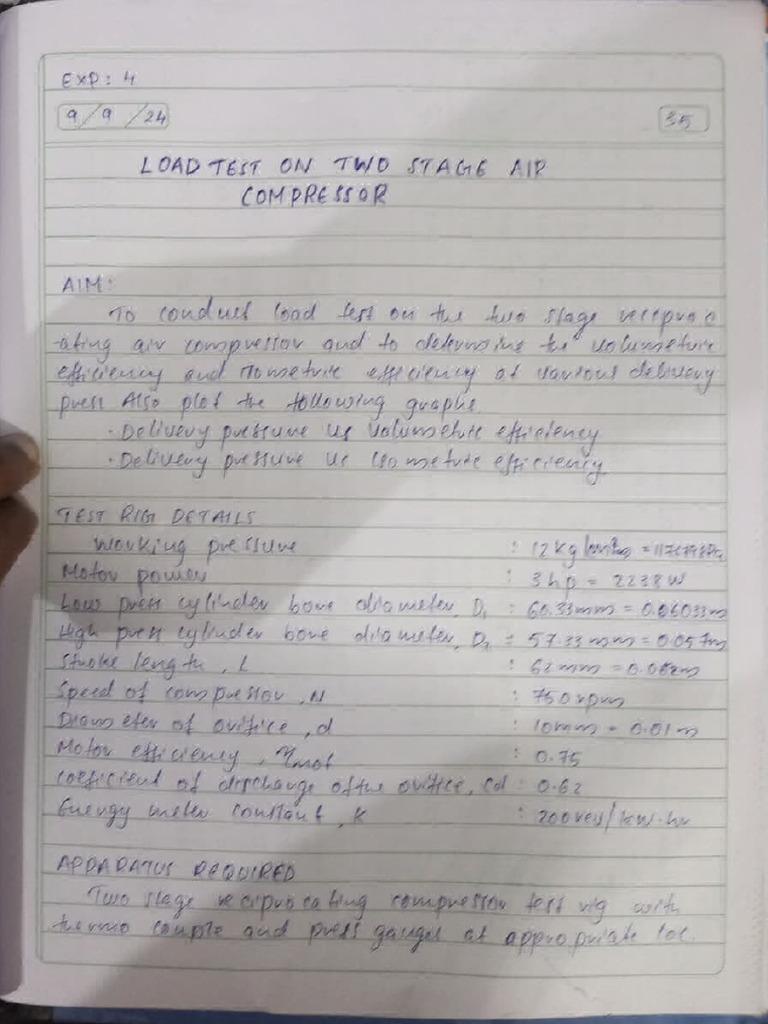 EXP: 4
9/9/24
35
LOAD TEST ON TWO STAGE AIR
COMPRESSOR
AIM:
To conduct load test on the two stage reciproc
ating air compressor and to determine the volumetric
efficiency and isometric efficiency at various delivery
press Also plot the following graphs
· Delivery pressure vs volumetric efficiency
· Delivery pressure vs isometric efficiency
TEST RIG DETAILS
Working pressure : 12 kg
Motor power : 3hp = 2238 W
Low press cylinder bore diameter, D1 : 60.33mm = 0.06033m
High press cylinder bore diameter, D2 : 57.33mm = 0.057m
Stroke length, L : 62 mm = 0.062m
Speed of compressor, N : 750 rpm
Diameter of orifice, d : 10mm = 0.01m
Motor efficiency, ηmot : 0.75
Coefficient of discharge of the orifice, Cd : 0.62
Energy meter constant, K : 200 rev/kW-hr
APPARATUS REQUIRED
Two stage reciprocating compressor test rig with
thermo couple and press gauges at appropriate loc.